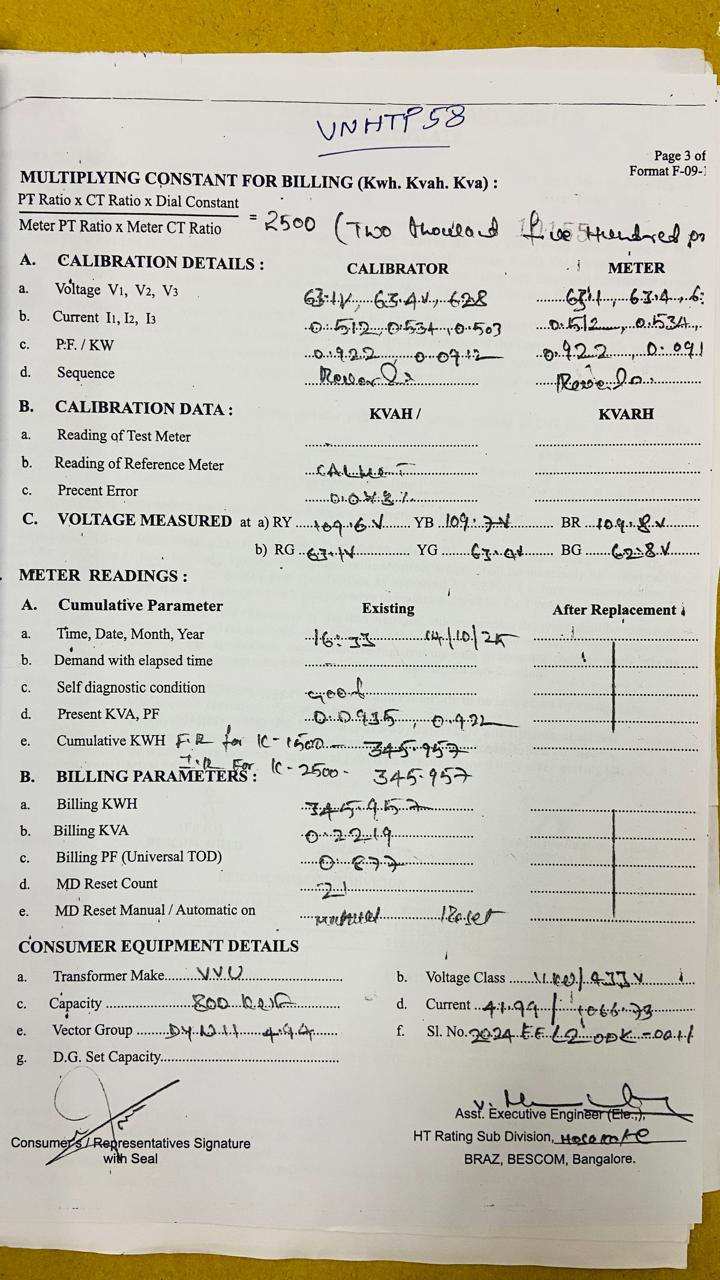 VNHTP58
Page 3 of
Format F-09-1
MULTIPLYING CONSTANT FOR BILLING (Kwh. Kvah. Kva) :
PT Ratio x CT Ratio x Dial Constant
Meter PT Ratio x Meter CT Ratio = 2500 (Two thousand five Hundred
A. CALIBRATION DETAILS : CALIBRATOR METER
a. Voltage V1, V2, V3 63.1V, 63.4V, 62.8 63.1, 63.4, 6
b. Current I1, I2, I3 0.512, 0.534, 0.503 0.512, 0.534,
c. P.F. / KW 0.922, 0.0912 0.922, 0.091
d. Sequence
B. CALIBRATION DATA : KVAH / KVARH
a. Reading of Test Meter
b. Reading of Reference Meter CALMET
c. Precent Error
C. VOLTAGE MEASURED at a) RY 109.6V YB 109.7V BR 109.8V
b) RG 63.1V YG BG 62.8V
METER READINGS :
A. Cumulative Parameter Existing After Replacement
a. Time, Date, Month, Year 16:33 14/10/25
b. Demand with elapsed time
c. Self diagnostic condition good
d. Present KVA, PF 0.0935, 0.922
e. Cumulative KWH F.R for K-1500 345.957
I.R For K-2500- 345.957
B. BILLING PARAMETERS :
a. Billing KWH 345.957
b. Billing KVA 0.2219
c. Billing PF (Universal TOD) 0.877
d. MD Reset Count 21
e. MD Reset Manual / Automatic on manual Reset
CONSUMER EQUIPMENT DETAILS
a. Transformer Make VVU b. Voltage Class 11KV/433V
c. Capacity 800 KVA d. Current 41.99 / 1066.73
e. Vector Group DY.N.11 f. Sl. No.
g. D.G. Set Capacity
Consumer's / Representatives Signature
with Seal
Asst. Executive Engineer (Ele.,),
HT Rating Sub Division, Hosakote
BRAZ, BESCOM, Bangalore.